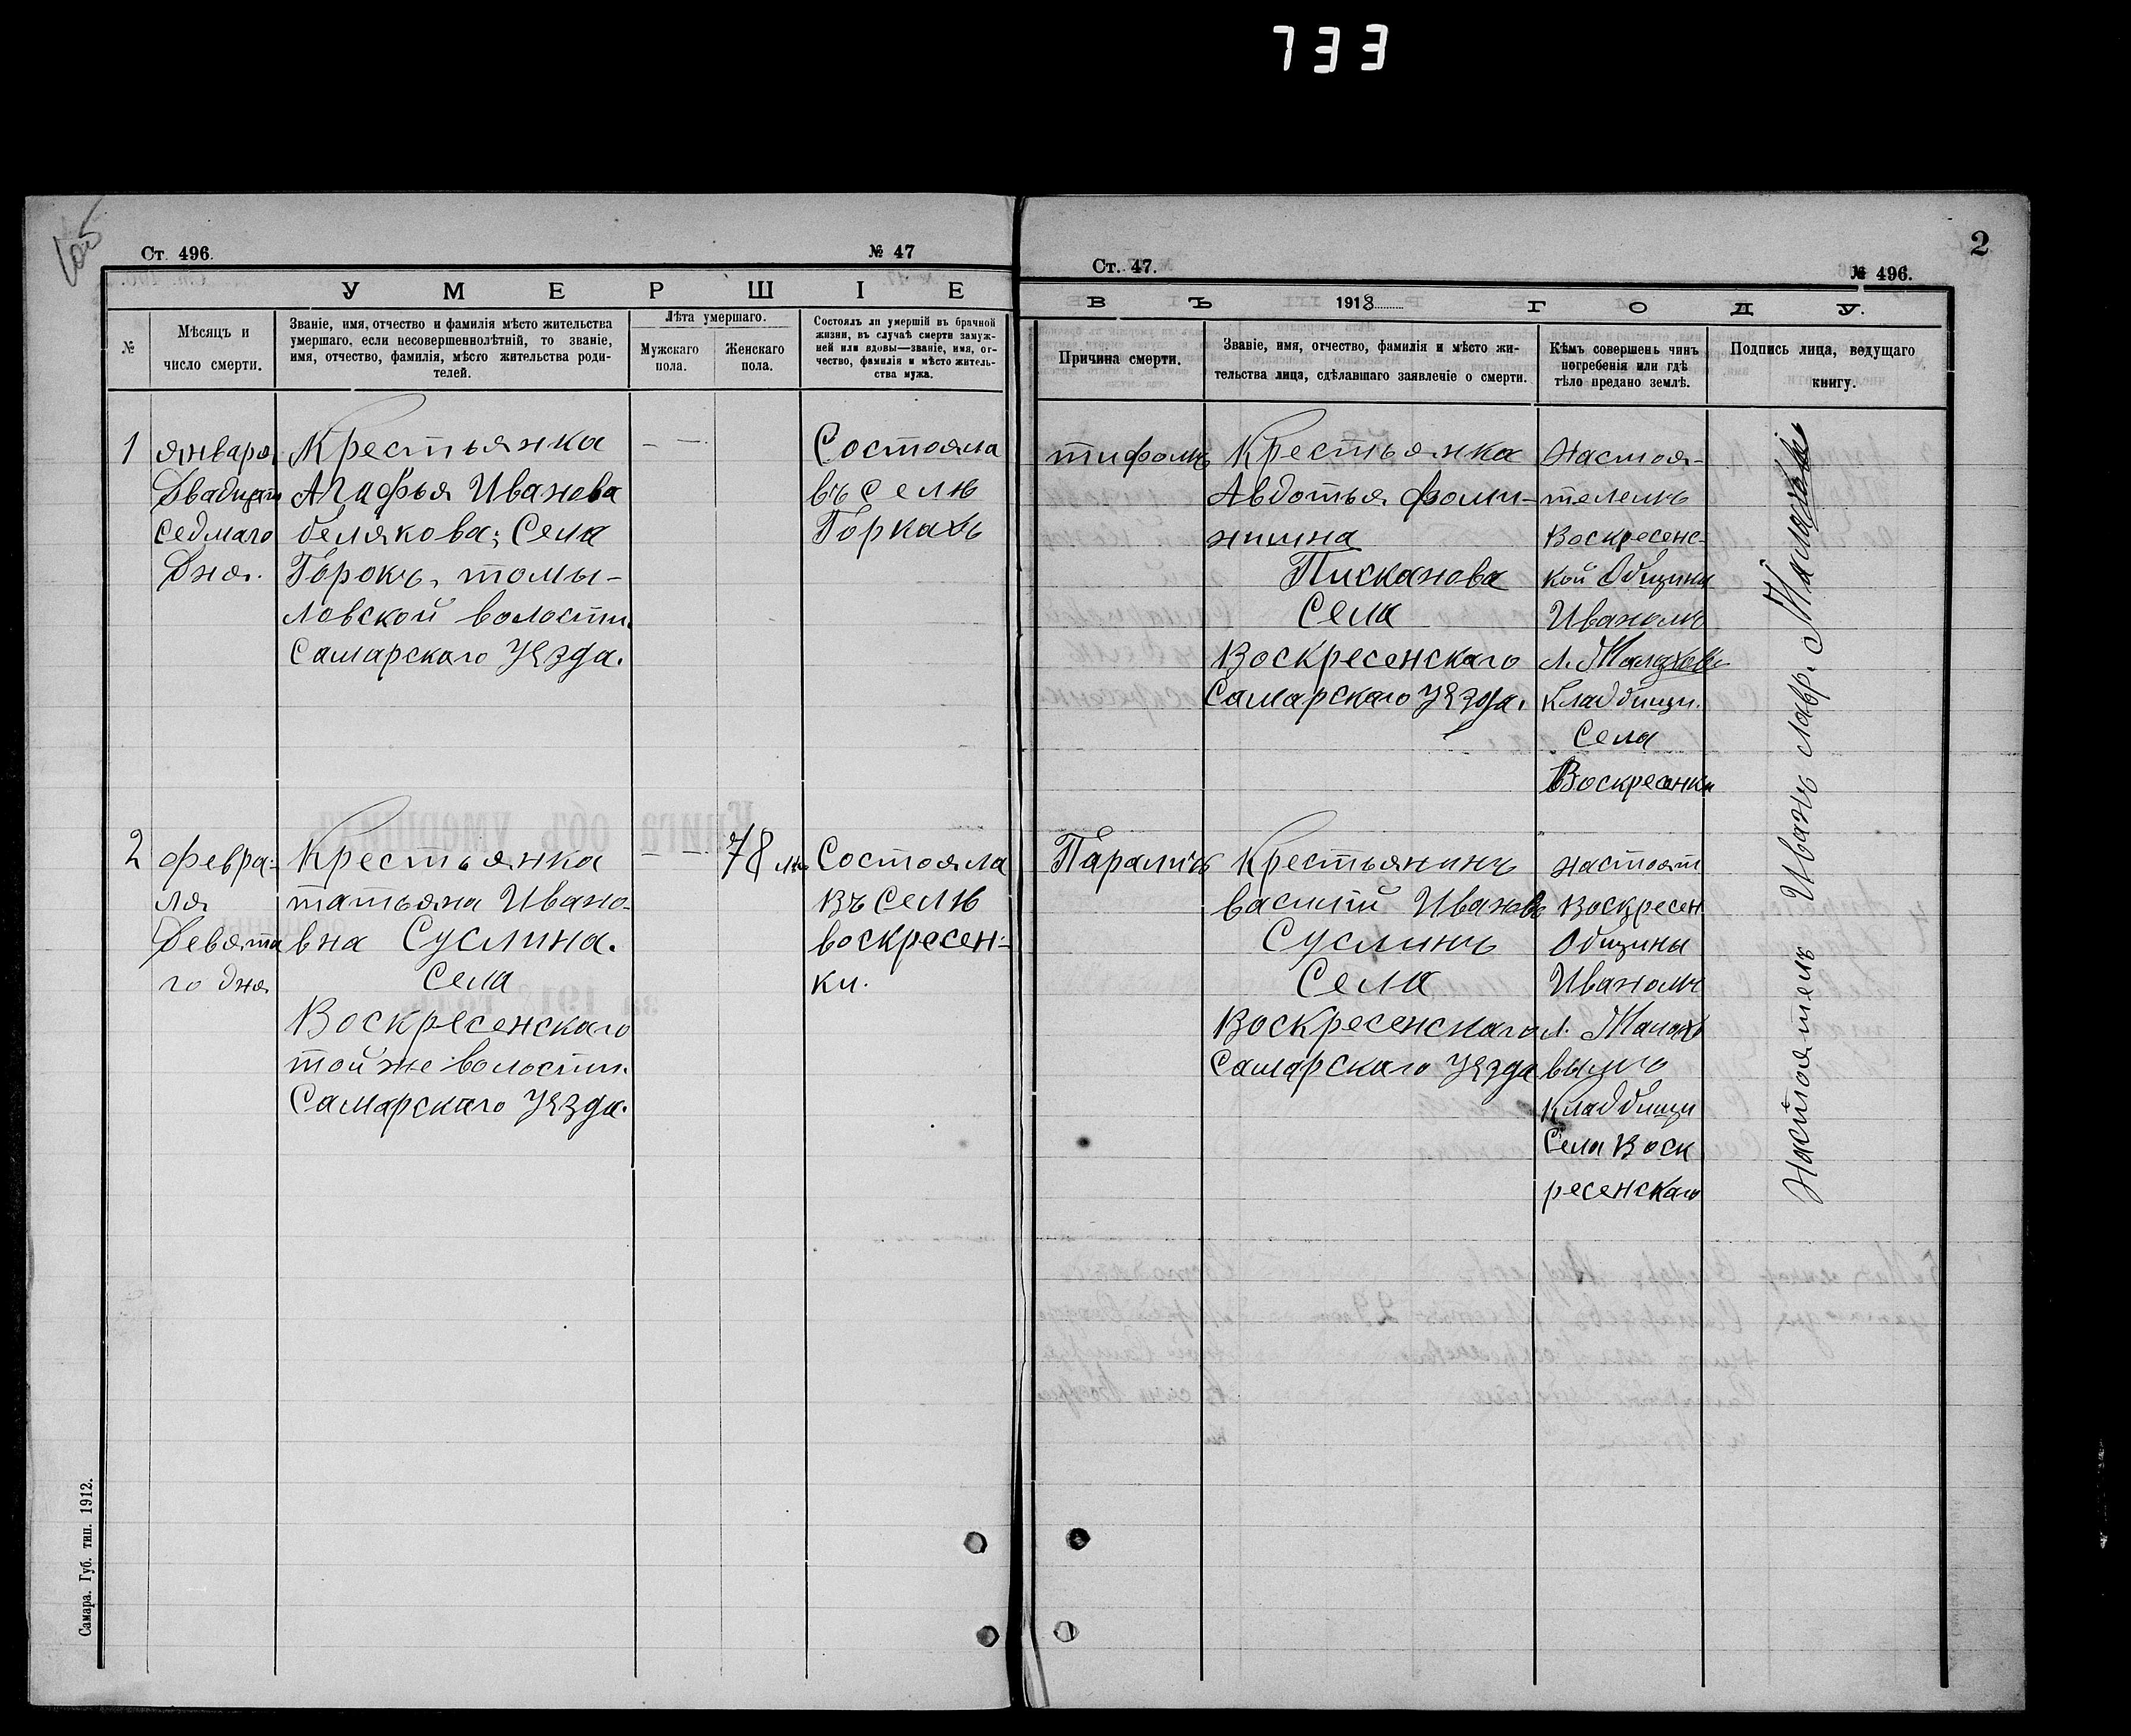 733
2
Ст. 496.
№ 47
Ст. 47.
№ 496.
УМЕРШІЕ
ВЪ 1918 ГОДУ.
№
Мѣсяцъ и
число смерти.
Званіе, имя, отчество и фамилія мѣсто жительства
умершаго, если несовершеннолѣтній, то званіе,
имя, отчество, фамилія, мѣсто жительства роди-
телей.
Лѣта умершаго.
Мужскаго
пола.
Женскаго
пола.
Состоялъ ли умершій въ брачной
жизни, въ случаѣ смерти замуж-
ней или вдовы—званіе, имя, от-
чество, фамилія и мѣсто житель-
ства мужа.
Причина смерти.
Званіе, имя, отчество, фамилія и мѣсто жи-
тельства лица, сдѣлавшаго заявленіе о смерти.
Кѣмъ совершенъ чинъ
погребенія или гдѣ
тѣло предано землѣ.
Подпись лица, ведущаго
книгу.
1
января
Двадцат
седмаго
Дня.
Крестьянка
Агафья Иванова
белякова; Села
Горокъ, томы-
ловской волости.
Самарскаго Уѣзда.
— —
Состояла
въ Селѣ
Горкахъ
тифомъ
Крестьянка
Авдотья фоми-
нишна
Писканова
Села
Воскресенскаго
Самарскаго Уѣзда.
Настоя-
телемъ
Воскресенс-
кой Общины
Иваномъ
Л. Малахов
Кладбищи.
Села
Воскресенки
2
февра-
ля
Девята
го дня
Крестьянка
татьяна Ивано-
вна Суслина.
Села
Воскресенскаго
той же волости.
Самарскаго Уѣзда.
— —
78 лѣ
Состояла
въ Селѣ
воскресен-
ки.
Параличъ
Крестьянинъ
василий Ивановъ
Суслинъ
Села
Воскресенскаго
Самарскаго Уѣзда
настоят
Воскресен
Общины
Иваномъ
Л. Малахо
вымъ
Кладбищи
Села Воск
ресенскаго
Настоятель Иванъ Лавр. Малаховъ
Самара. Губ. тип. 1912.